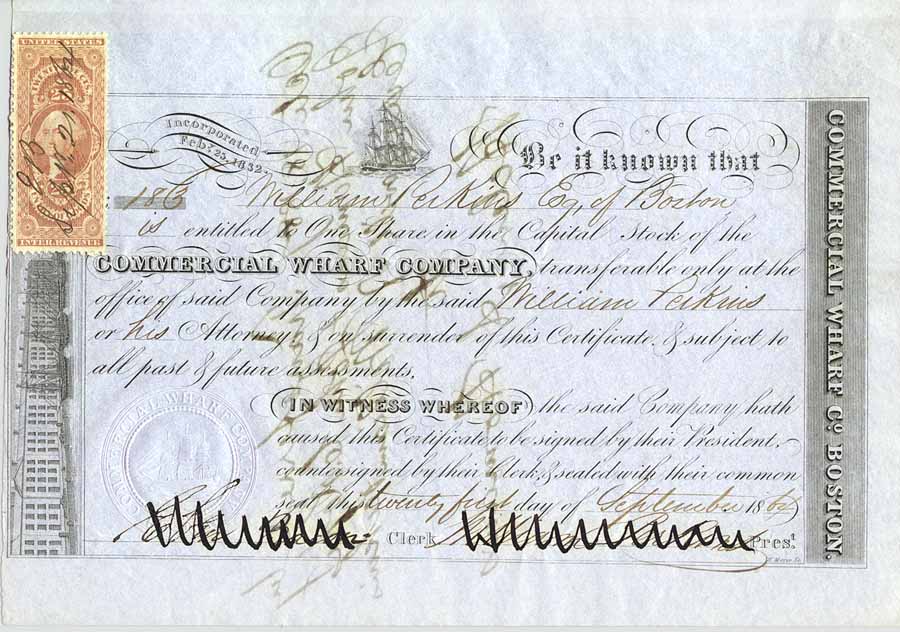 UNITED STATES
INTER. REVENUE
Incorporated
Feb: 23, 1832.
Be it known that
186
William Perkins Esq. of Boston
is entitled to One Share in the Capital Stock of the
COMMERCIAL WHARF COMPANY, transferable only at the
office of said Company by the said William Perkins
or his Attorney & on surrender of this Certificate & subject to
all past & future assessments.
IN WITNESS WHEREOF the said Company hath
caused this Certificate to be signed by their President,
countersigned by their Clerk & sealed with their common
seal this twenty first day of September 186
Clerk
Pres.t
COMMERCIAL WHARF Co. BOSTON.